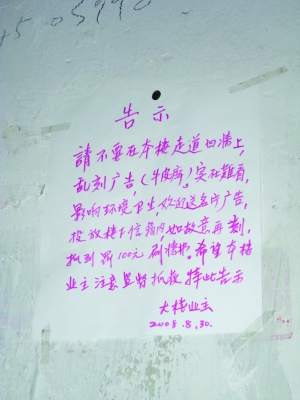 告示
請不要在本楼走道口墙上,
乱刻广告,(牛皮癣)实在難看,
影响环境卫生,欢迎送名片广告,
投放楼下信箱内,如故意再刻,
抓到罚100元刷墙。希望本楼
业主注意监督抓获 特此告示
大楼业主
2008.8.30.